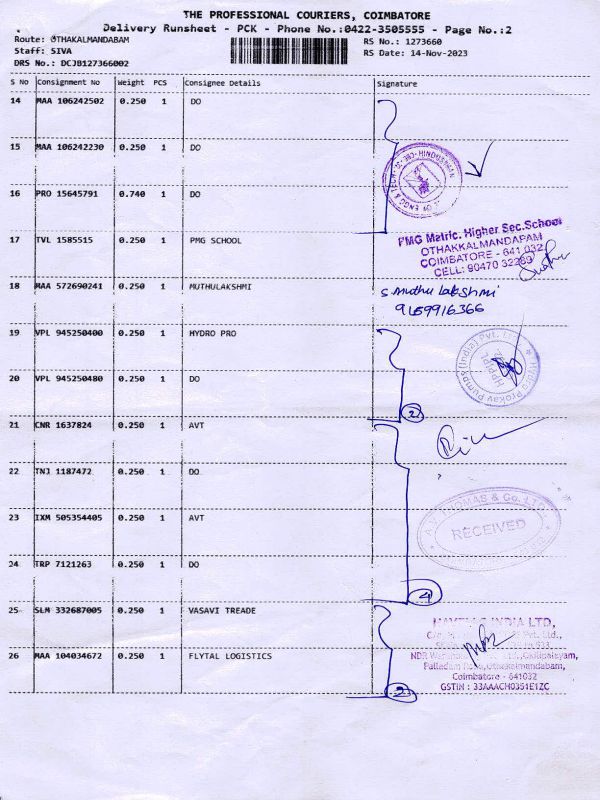 THE PROFESSIONAL COURIERS, COIMBATORE
Delivery Runsheet - PCK - Phone No.:0422-3505555 - Page No.:2
Route: OTHAKALMANDABAM
Staff: SIVA
DRS No.: DCJB127366002
RS No.: 1273660
RS Date: 14-Nov-2023
S No Consignment No Weight PCS Consignee Details Signature
14 MAA 106242502 0.250 1 DO
15 MAA 106242230 0.250 1 DO
16 PRO 15645791 0.740 1 DO
17 TVL 1585515 0.250 1 PMG SCHOOL
PMG Matric. Higher Sec.School
OTHAKKALMANDAPAM
COIMBATORE - 641 032
CELL: 90470 32289
18 MAA 572690241 0.250 1 MUTHULAKSHMI
S. Muthu lakshmi
9159916366
19 VPL 945250400 0.250 1 HYDRO PRO
20 VPL 945250480 0.250 1 DO
2
21 CNR 1637824 0.250 1 AVT
22 TNJ 1187472 0.250 1 DO
23 IXM 505354405 0.250 1 AVT
A.V. THOMAS & Co. LTD.
RECEIVED
24 TRP 7121263 0.250 1 DO
4
25 SLM 332687005 0.250 1 VASAVI TREADE
INDIA LTD,
Pvt. Ltd.,
26 MAA 104034672 0.250 1 FLYTAL LOGISTICS
NDR
Palladam Road, Othakalmandabam,
Coimbatore - 641032
GSTIN : 33AAACH0351E1ZC
2